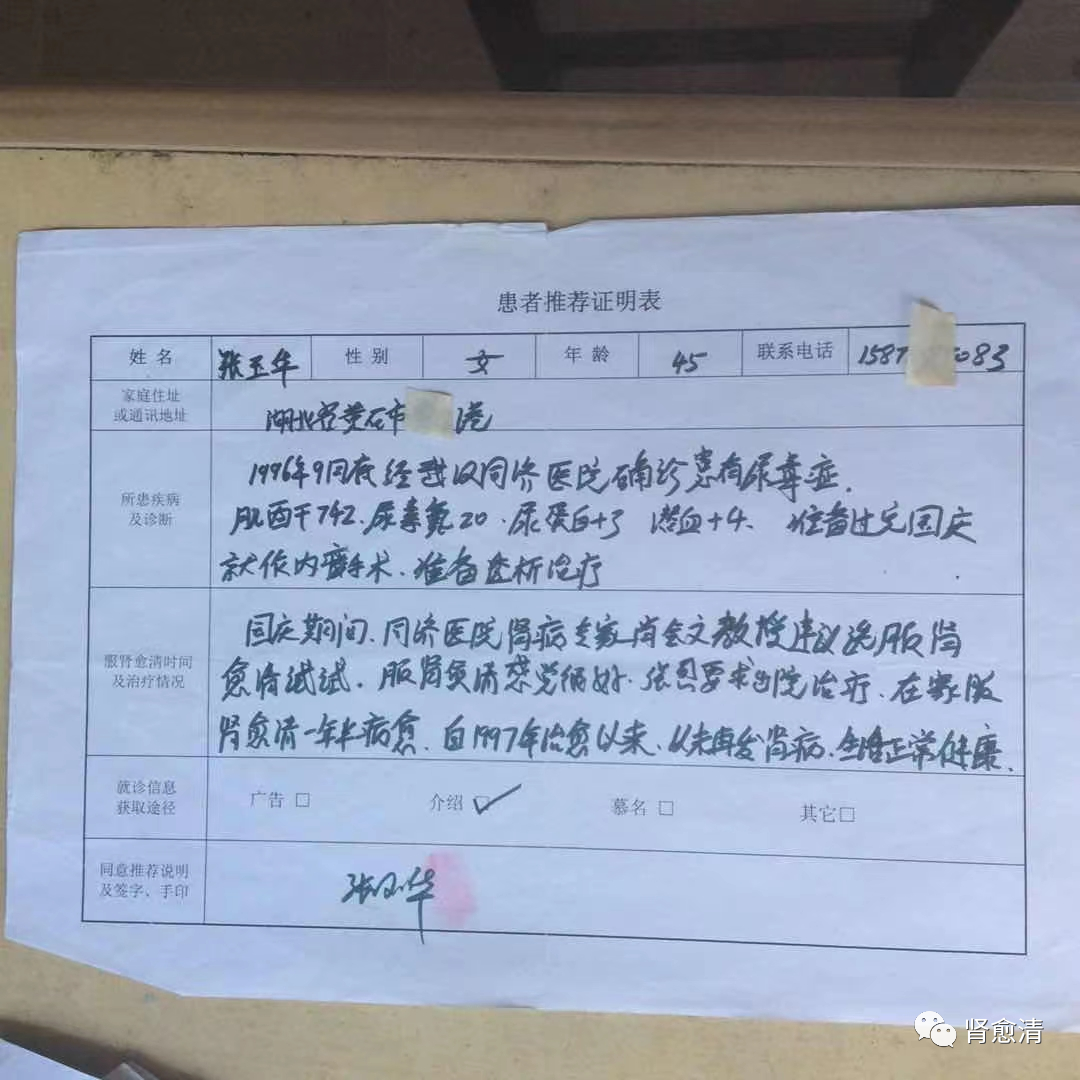 患者推荐证明表
姓名 张玉华 性别 女 年龄 45 联系电话 1587 083
家庭住址
或通讯地址
湖北省黄石市 港
所患疾病
及诊断
1996年9月在经武汉同济医院确诊患有尿毒症.
肌酉干742.尿毒氮20.尿蛋白+3 潜血+4. 准备过完国庆
就作内瘘手术.准备透析治疗
服肾愈清时间
及治疗情况
国庆期间.同济医院肾病专家肖全文教授建议说服肾
愈清试试.服肾愈清感觉很好.要求出院治疗.在家服
肾愈清一年半病愈.自1997年治愈以来.从未再发肾病.生活正常健康.
就诊信息
获取途径
广告 □ 介绍 ☑ 慕名 □ 其它□
同意推荐说明
及签字、手印
张玉华
肾愈清